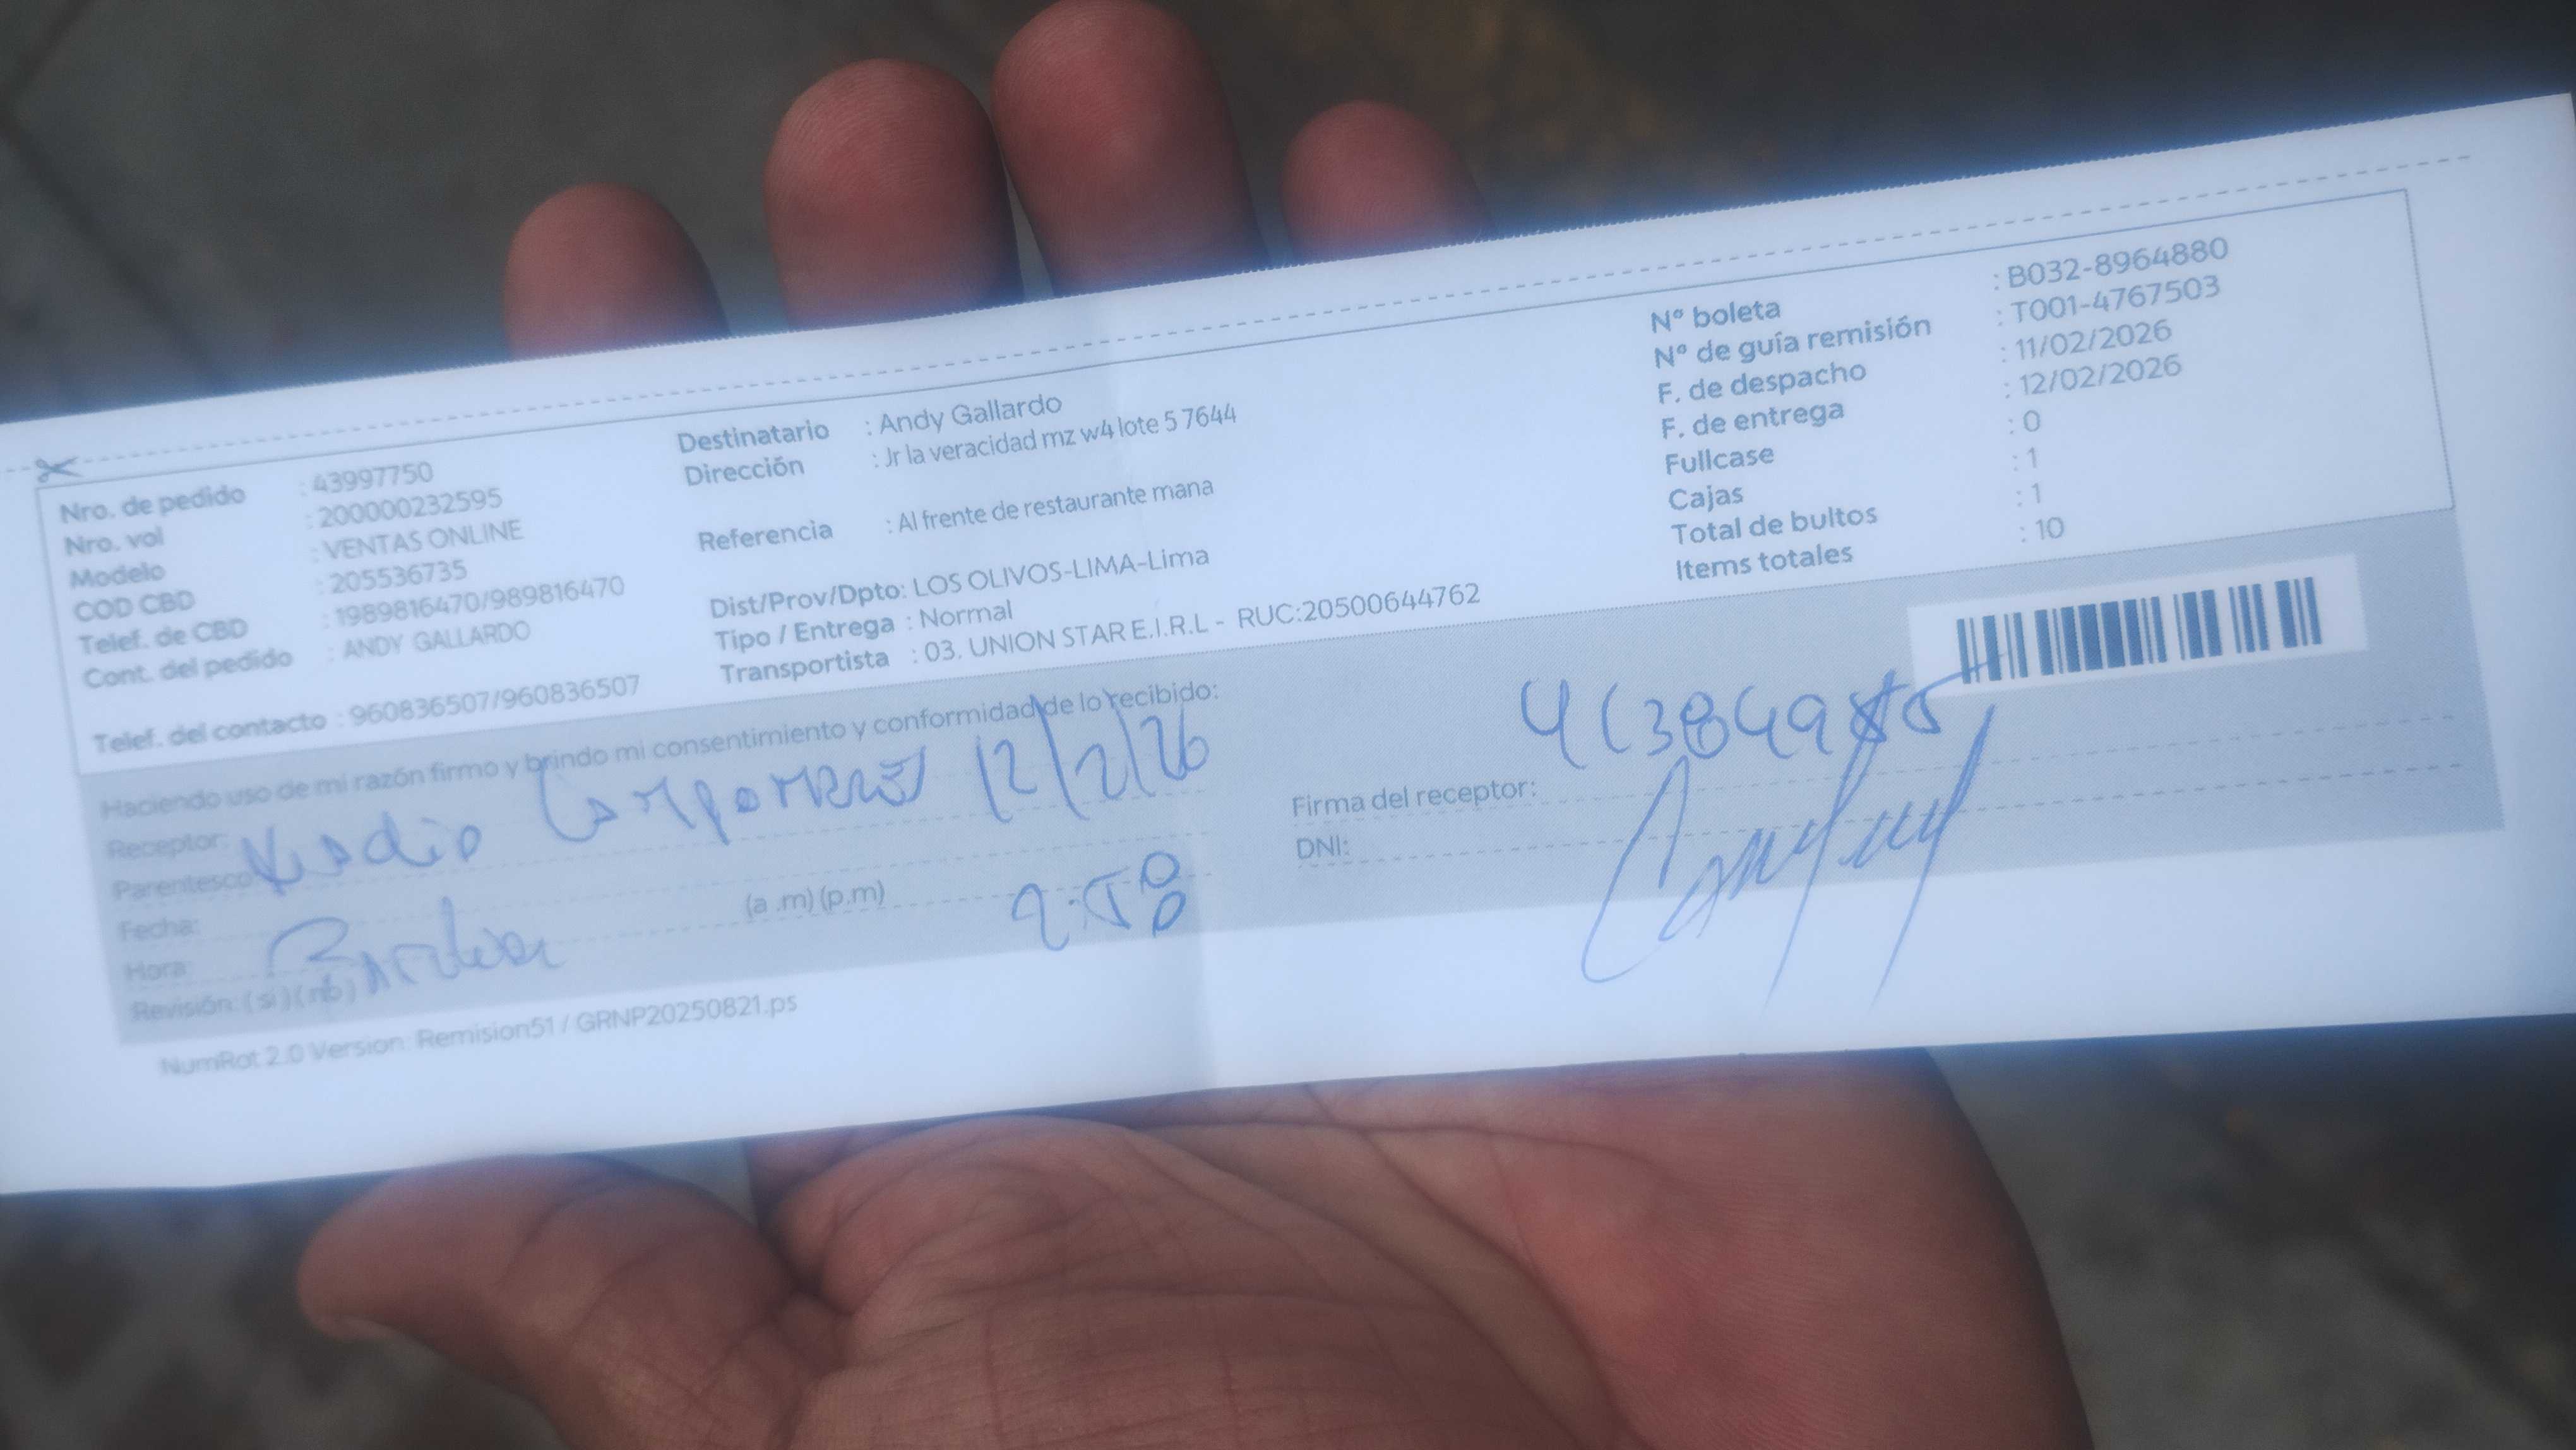 Nro. de pedido : 43997750
Nro. vol : 200000232595
Modelo : VENTAS ONLINE
COD CBD : 205536735
Telef. de CBD : 1989816470/989816470
Cont. del pedido : ANDY GALLARDO
Telef. del contacto : 960836507/960836507
Destinatario : Andy Gallardo
Dirección : Jr la veracidad mz w4 lote 5 7644
Referencia : Al frente de restaurante mana
Dist/Prov/Dpto: LOS OLIVOS-LIMA-Lima
Tipo / Entrega : Normal
Transportista : 03. UNION STAR E.I.R.L - RUC:20500644762
N° boleta : B032-8964880
N° de guía remisión : T001-4767503
F. de despacho : 11/02/2026
F. de entrega : 12/02/2026
Fullcase : 0
Cajas : 1
Total de bultos : 1
Items totales : 10
Haciendo uso de mi razón firmo y brindo mi consentimiento y conformidad de lo recibido:
Receptor: 12/2/26
Parentesco
Fecha: (a .m) (p.m) 9:58
Hora:
Revisión: ( si ) ( no )
Firma del receptor:
DNI:
NumRot 2.0 Version: Remision51 / GRNP20250821.ps